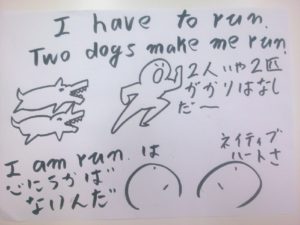 I have to run.
Two dogs make me run.
2人いや2匹
がかりはなし
だ〜
I am run. は
ないんだ
ネイティブ
ハートさ